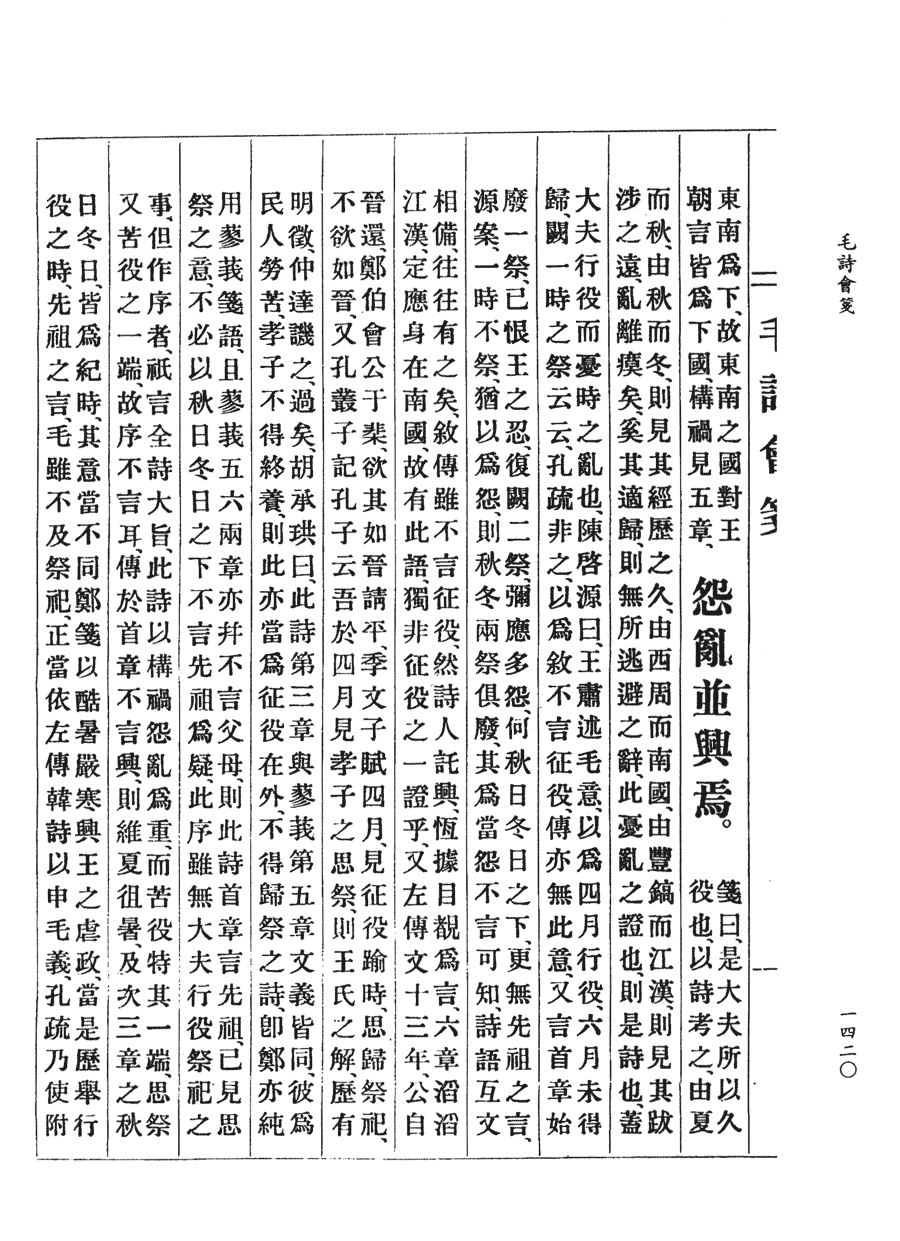 毛詩會箋
一四二〇
毛詩會箋
東南爲下、故東南之國對王
朝言皆爲下國、構禍見五章、
怨亂並興焉。
箋曰、是大夫所以久
役也、以詩考之、由夏
而秋、由秋而冬、則見其經歷之久、由西周而南國、由豐鎬而江漢、則見其跋
涉之遠、亂離瘼矣、奚其適歸、則無所逃避之辭、此憂亂之證也、則是詩也、蓋
大夫行役而憂時之亂也、陳啓源曰、王肅述毛意、以爲四月行役、六月未得
歸、闕一時之祭云云、孔疏非之、以爲敘不言征役、傳亦無此意、又言首章始
廢一祭、已恨王之忍、復闕二祭、彌應多怨、何秋日冬日之下、更無先祖之言、
源案、一時不祭、猶以爲怨、則秋冬兩祭俱廢、其爲當怨不言可知、詩語互文
相備、往往有之矣、敘傳雖不言征役、然詩人託興、恆據目覩爲言、六章滔滔
江漢、定應身在南國、故有此語、獨非征役之一證乎、又左傳文十三年、公自
晉還、鄭伯會公于棐、欲其如晉請平、季文子賦四月、見征役踰時、思歸祭祀、
不欲如晉、又孔叢子記孔子云吾於四月見孝子之思祭、則王氏之解、歷有
明徵、仲達譏之、過矣、胡承珙曰、此詩第三章與蓼莪第五章文義皆同、彼爲
民人勞苦、孝子不得終養、則此亦當爲征役在外、不得歸祭之詩、卽鄭亦純
用蓼莪箋語、且蓼莪五六兩章亦幷不言父母、則此詩首章言先祖、已見思
祭之意、不必以秋日冬日之下不言先祖爲疑、此序雖無大夫行役祭祀之
事、但作序者、祇言全詩大旨、此詩以構禍怨亂爲重、而苦役特其一端、思祭
又苦役之一端、故序不言耳、傳於首章不言興、則維夏徂暑、及次三章之秋
日冬日、皆爲紀時、其意當不同鄭箋以酷暑嚴寒興王之虐政、當是歷舉行
役之時、先祖之言、毛雖不及祭祀、正當依左傳韓詩以申毛義、孔疏乃使附